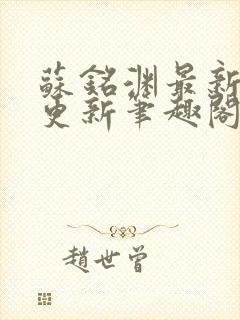 蘇銘淵最新
更新筆趣閣
趙世曾